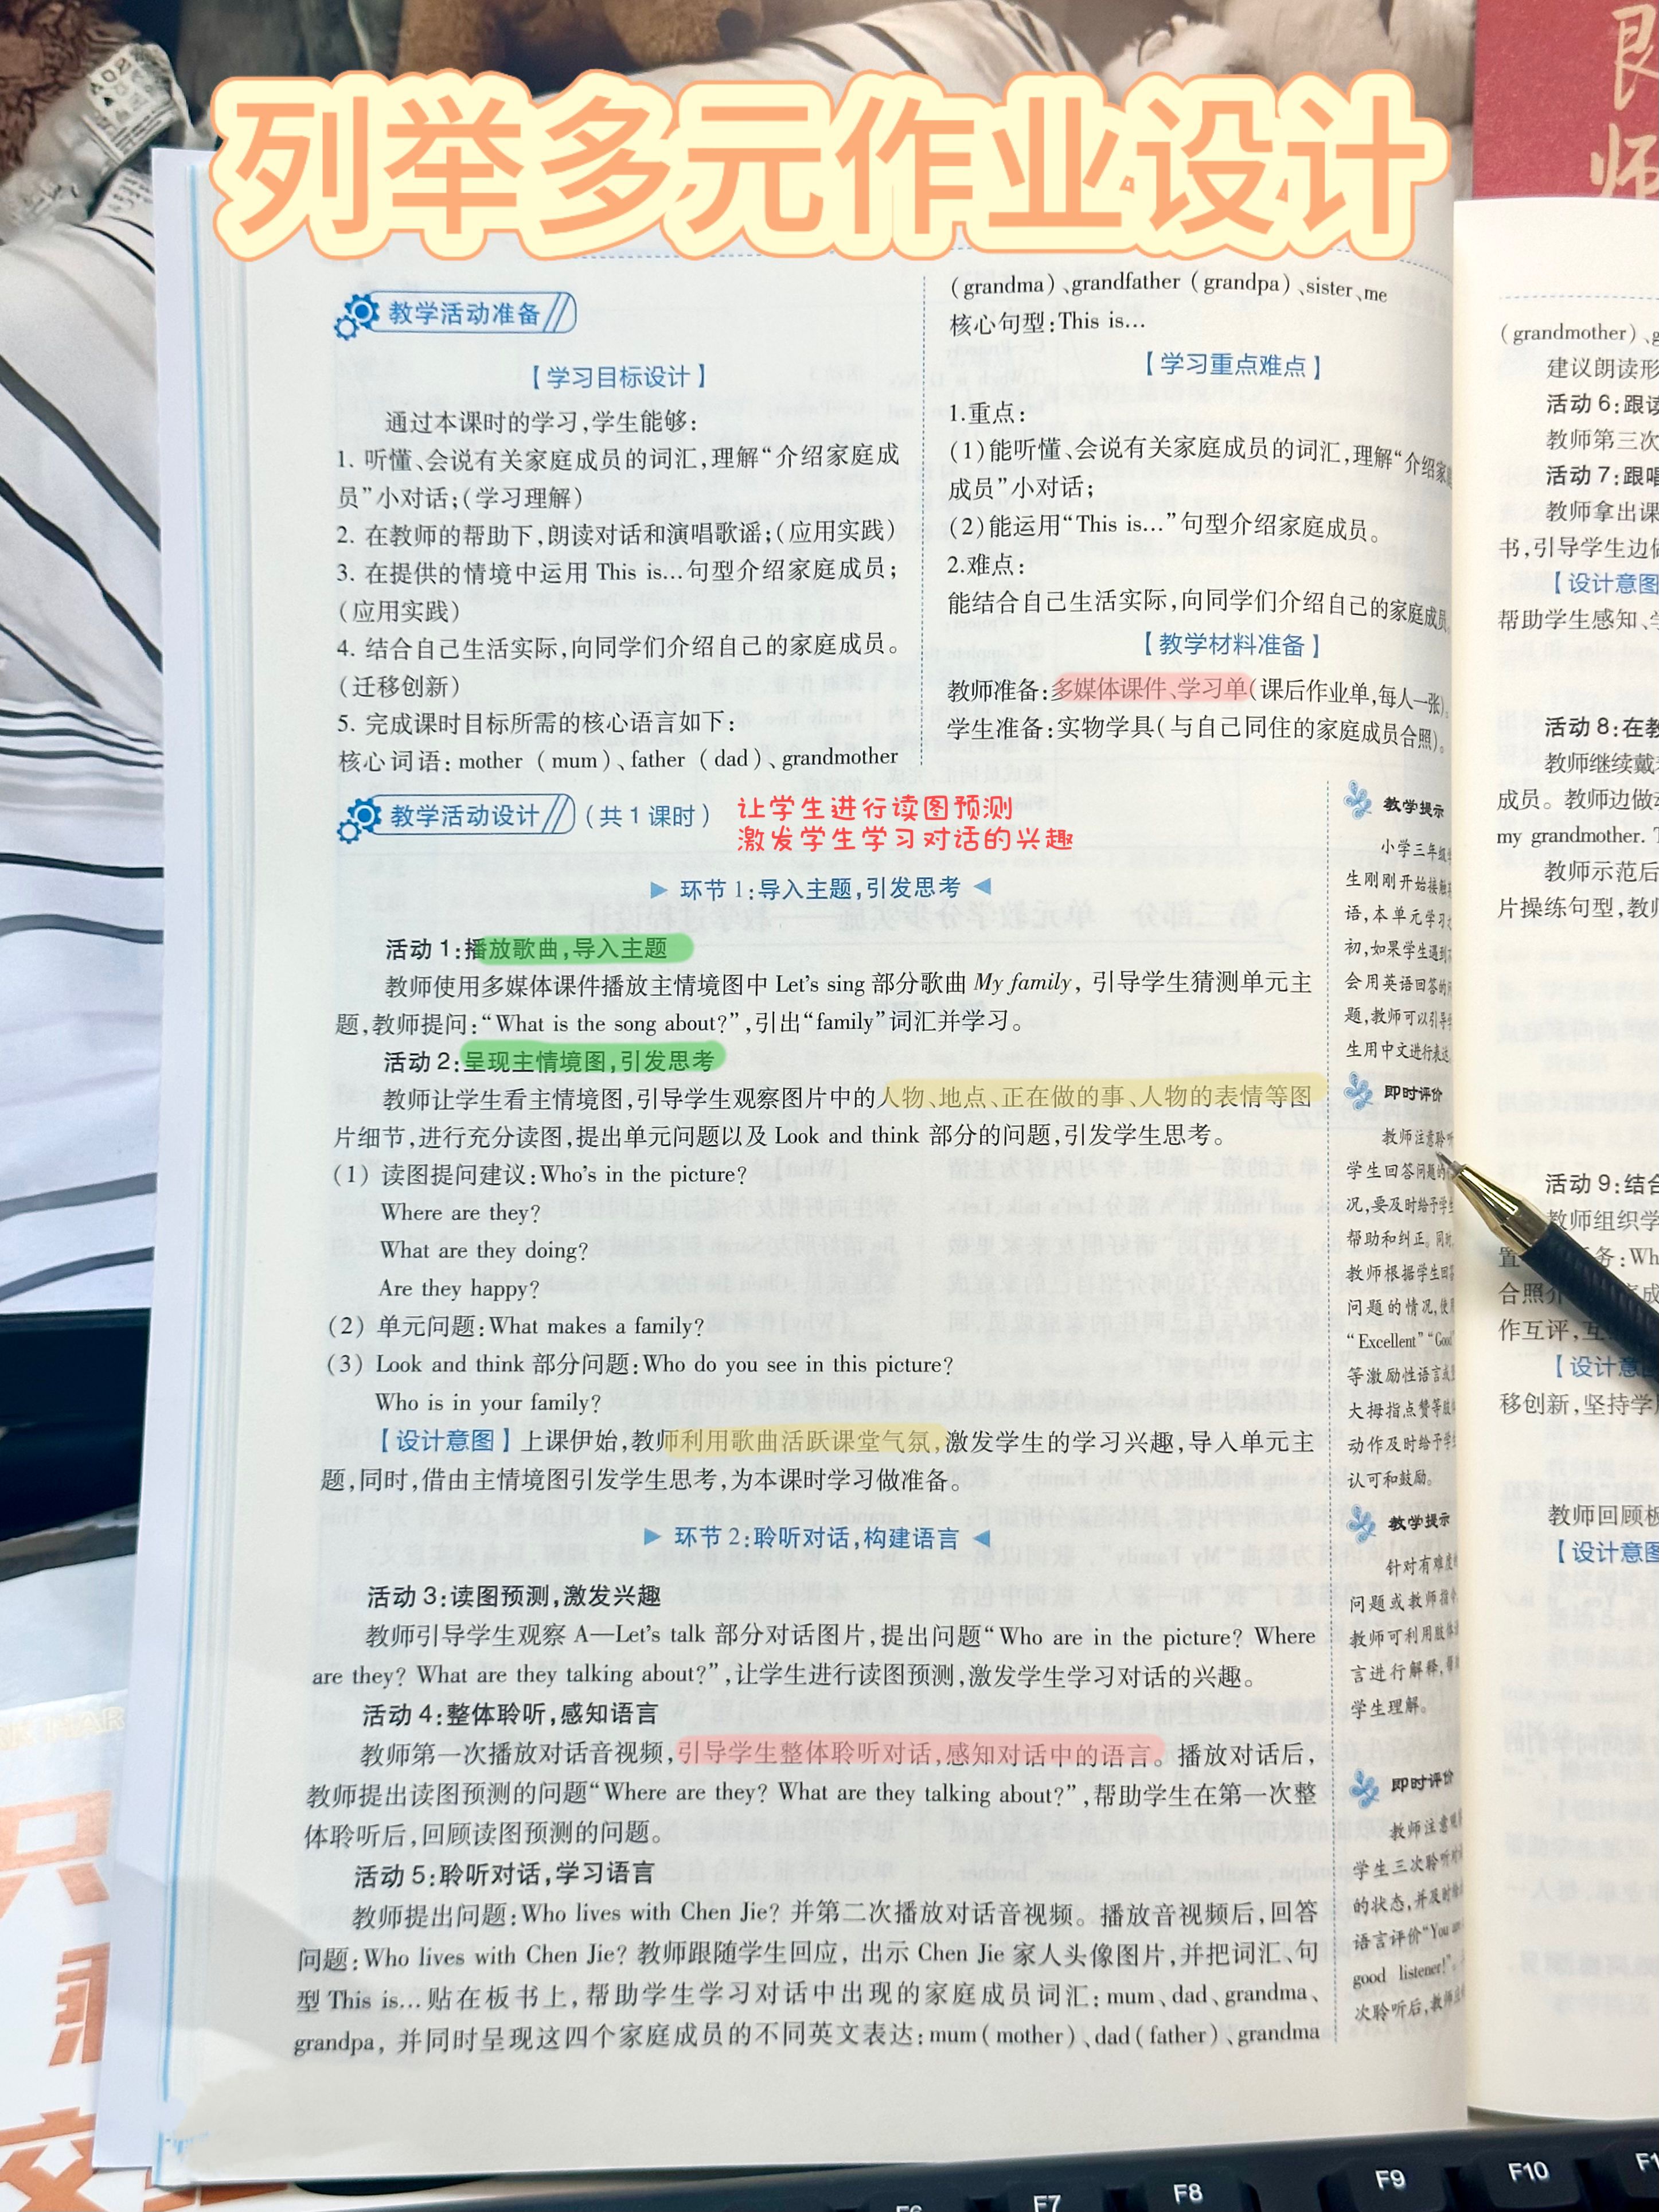 列举多元作业设计
良
师
教学活动准备
【学习目标设计】
通过本课时的学习,学生能够:
1. 听懂、会说有关家庭成员的词汇,理解“介绍家庭成
员”小对话;(学习理解)
2. 在教师的帮助下,朗读对话和演唱歌谣;(应用实践)
3. 在提供的情境中运用 This is…句型介绍家庭成员;
(应用实践)
4. 结合自己生活实际,向同学们介绍自己的家庭成员。
(迁移创新)
5. 完成课时目标所需的核心语言如下:
核心词语: mother (mum)、father (dad)、grandmother
(grandma)、grandfather (grandpa)、sister、me
核心句型:This is…
【学习重点难点】
1.重点:
(1)能听懂、会说有关家庭成员的词汇,理解“介绍家
成员”小对话;
(2)能运用“This is…”句型介绍家庭成员。
2.难点:
能结合自己生活实际,向同学们介绍自己的家庭成员。
【教学材料准备】
教师准备:多媒体课件、学习单(课后作业单,每人一张)。
学生准备:实物学具(与自己同住的家庭成员合照)。
教学活动设计 (共1课时)
让学生进行读图预测
激发学生学习对话的兴趣
环节1:导入主题,引发思考
活动1:播放歌曲,导入主题
教师使用多媒体课件播放主情境图中 Let's sing 部分歌曲 My family, 引导学生猜测单元主
题,教师提问:“What is the song about?”,引出“family”词汇并学习。
活动2:呈现主情境图,引发思考
教师让学生看主情境图,引导学生观察图片中的人物、地点、正在做的事、人物的表情等图
片细节,进行充分读图,提出单元问题以及 Look and think 部分的问题,引发学生思考。
(1) 读图提问建议:Who's in the picture?
Where are they?
What are they doing?
Are they happy?
(2) 单元问题:What makes a family?
(3) Look and think 部分问题:Who do you see in this picture?
Who is in your family?
【设计意图】上课伊始,教师利用歌曲活跃课堂气氛,激发学生的学习兴趣,导入单元主
题,同时,借由主情境图引发学生思考,为本课时学习做准备。
环节2:聆听对话,构建语言
活动3:读图预测,激发兴趣
教师引导学生观察 A—Let's talk 部分对话图片,提出问题“Who are in the picture? Where
are they? What are they talking about?”,让学生进行读图预测,激发学生学习对话的兴趣。
活动4:整体聆听,感知语言
教师第一次播放对话音视频,引导学生整体聆听对话,感知对话中的语言。播放对话后,
教师提出读图预测的问题“Where are they? What are they talking about?”,帮助学生在第一次整
体聆听后,回顾读图预测的问题。
活动5:聆听对话,学习语言
教师提出问题:Who lives with Chen Jie? 并第二次播放对话音视频。播放音视频后,回答
问题:Who lives with Chen Jie? 教师跟随学生回应, 出示 Chen Jie 家人头像图片,并把词汇、句
型 This is…贴在板书上,帮助学生学习对话中出现的家庭成员词汇: mum、dad、grandma、
grandpa, 并同时呈现这四个家庭成员的不同英文表达: mum(mother)、dad(father)、grandma
教学提示
小学三年级
生刚刚开始接触
语,本单元学习
初,如果学生遇到
会用英语回答的
题,教师可以引导
生用中文进行表达
即时评价
教师注意聆听
学生回答问题的
况,要及时给予学生
帮助和纠正。同时,
教师根据学生回答
问题的情况,使用
“Excellent”“Good
等激励性语言或
大拇指点赞等肢
动作及时给予学
认可和鼓励。
教学提示
针对有难度
问题或教师指令
教师可利用肢体
言进行解释,帮
学生理解。
即时评价
教师注意观
学生三次聆听对
的状态,并及时
语言评价“You
good listener!”。
次聆听后,教师
(grandmother)、g
建议朗读形
活动6:跟读
教师第三次
活动7:跟唱
教师拿出课
书,引导学生边做
【设计意图
帮助学生感知、
活动8:在教
教师继续戴
成员。教师边做
my grandmother. T
教师示范后
片操练句型,教师
活动9:结合
教师组织学
务:Wh
合照介
作互评,互
【设计意
移创新,坚持学
教师回顾板
【设计意图
只
F6
F7
F8
F9
F10